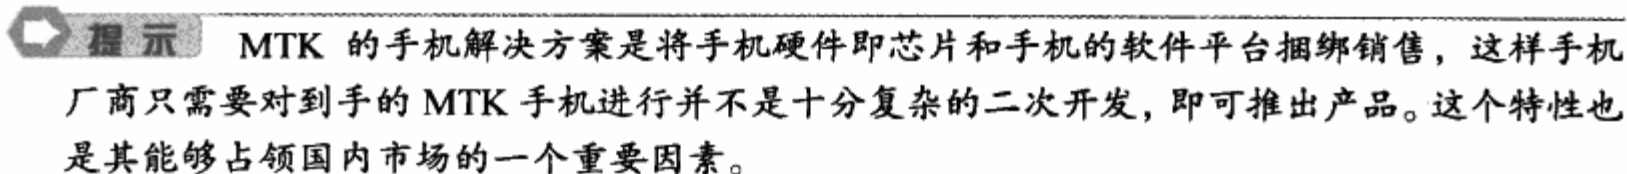 提示 MTK 的手机解决方案是将手机硬件即芯片和手机的软件平台捆绑销售，这样手机
厂商只需要对到手的 MTK 手机进行并不是十分复杂的二次开发，即可推出产品。这个特性也
是其能够占领国内市场的一个重要因素。